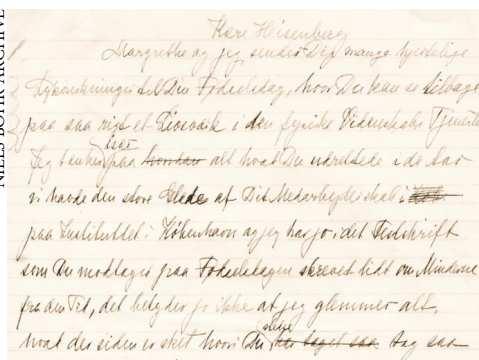 NIELS BOHR ARCHIVE
Kære Heisenberg
Margrethe og jeg sender Dig mange hjertelige
Lykønskninger til Din Fødselsdag, hvor Du kan se tilbage
paa saa rigt et Livsværk i den fysiske Videnskabs Tjeneste
Jeg tænker især paa alt hvad Du udrettede i de Aar
vi havde den store Glæde af Dit Medarbejderskab
paa Instituttet i København og jeg har jo i det Festskrift
som Du modtager paa Fødselsdagen skrevet lidt om Minderne
fra den Tid, det betyder jo ikke at jeg glemmer alt,
hvad der siden er sket hvori Du tog saa